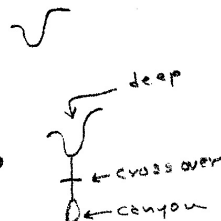 deep
cross over
canyon